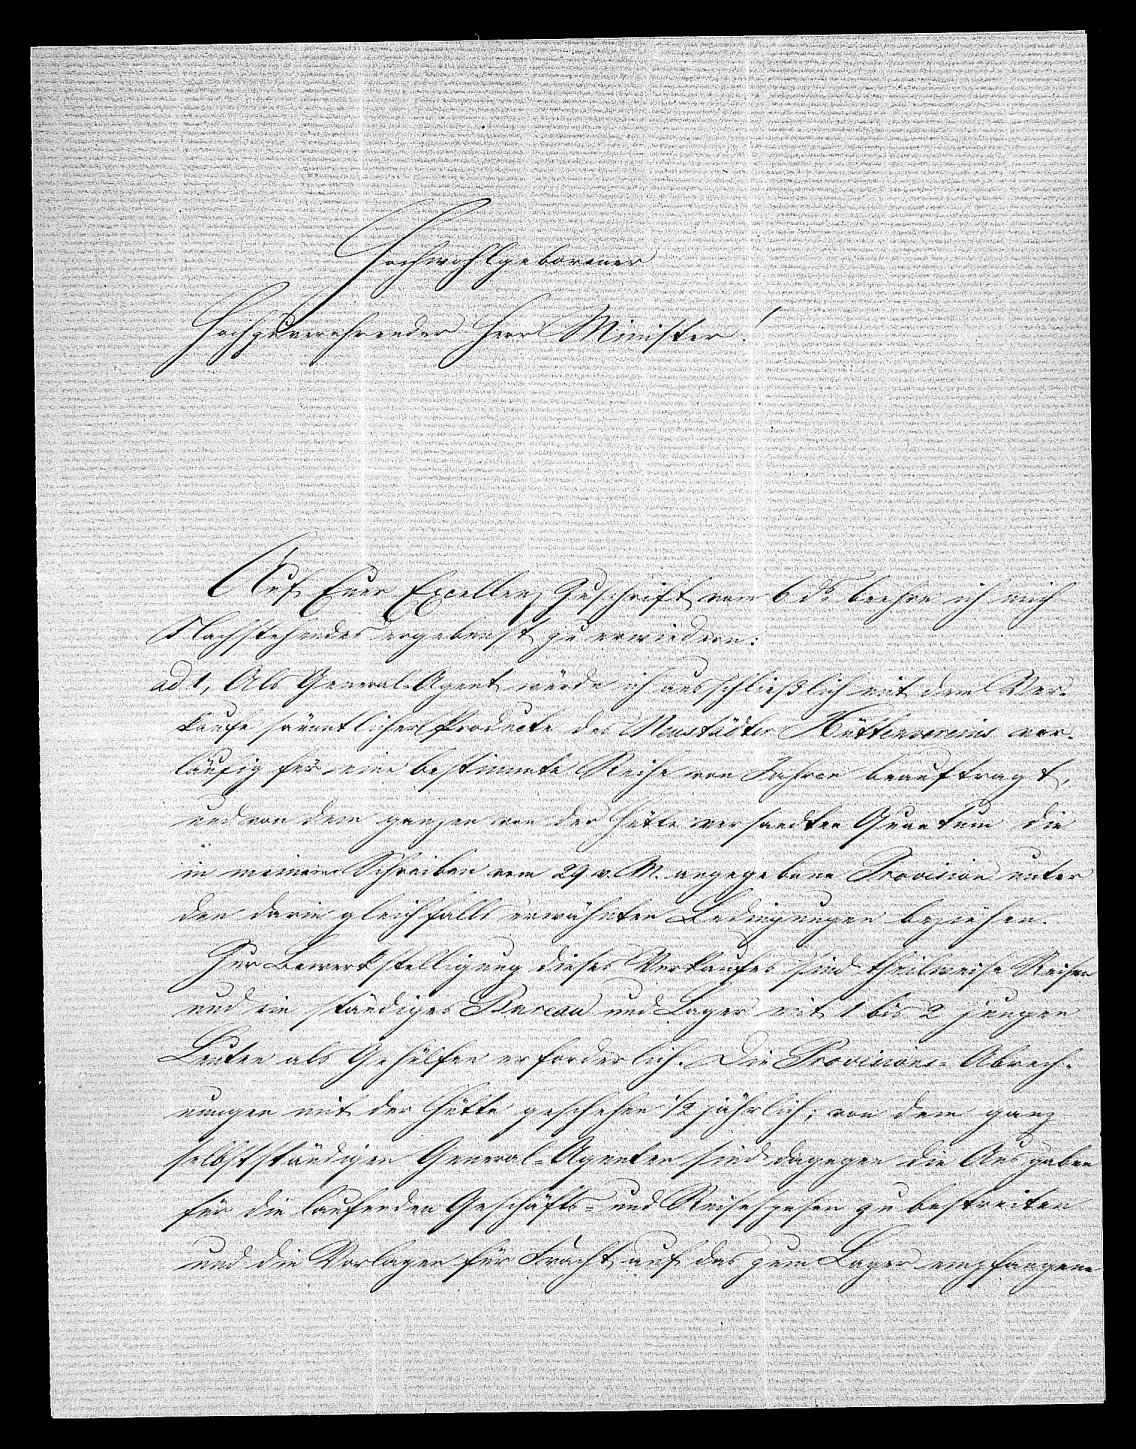 Hochwohlgeborener
Hochzuverehrender Herr Minister!
Auf Euer Excellenz Zuschrift vom 6 ds. beehre ich mich
Nachstehendes ergebenst zu erwiedern:
ad 1, Als General-Agent würde ich ausschließlich mit dem Ver-
kaufe sämmtlicher Producte des Neustädter Hüttenvereins vor-
läufig für eine bestimmte Reihe von Jahren beauftragt,
und von dem ganzen von der Hütte versandten Quantum die
in meinem Schreiben vom 29 v. M. angegebene Provision unter
den darin gleichfalls erwähnten Bedingungen beziehen.
Zur Bewerkstelligung dieses Verkaufes sind theilweise Reisen
und ein ständiges Bureau und Lager mit 1 bis 2 jungen
Leuten als Gehülfen erforderlich. Die Provisions-Abrech-
nungen mit der Hütte geschehen 1/2 jährlich; von dem ganz
selbstständigen General-Agenten sind dagegen die Ausgaben
für die laufenden Geschäfts- und Reisespesen zu bestreiten
und die Vorlagen für Fracht auf das zum Lager empfangene